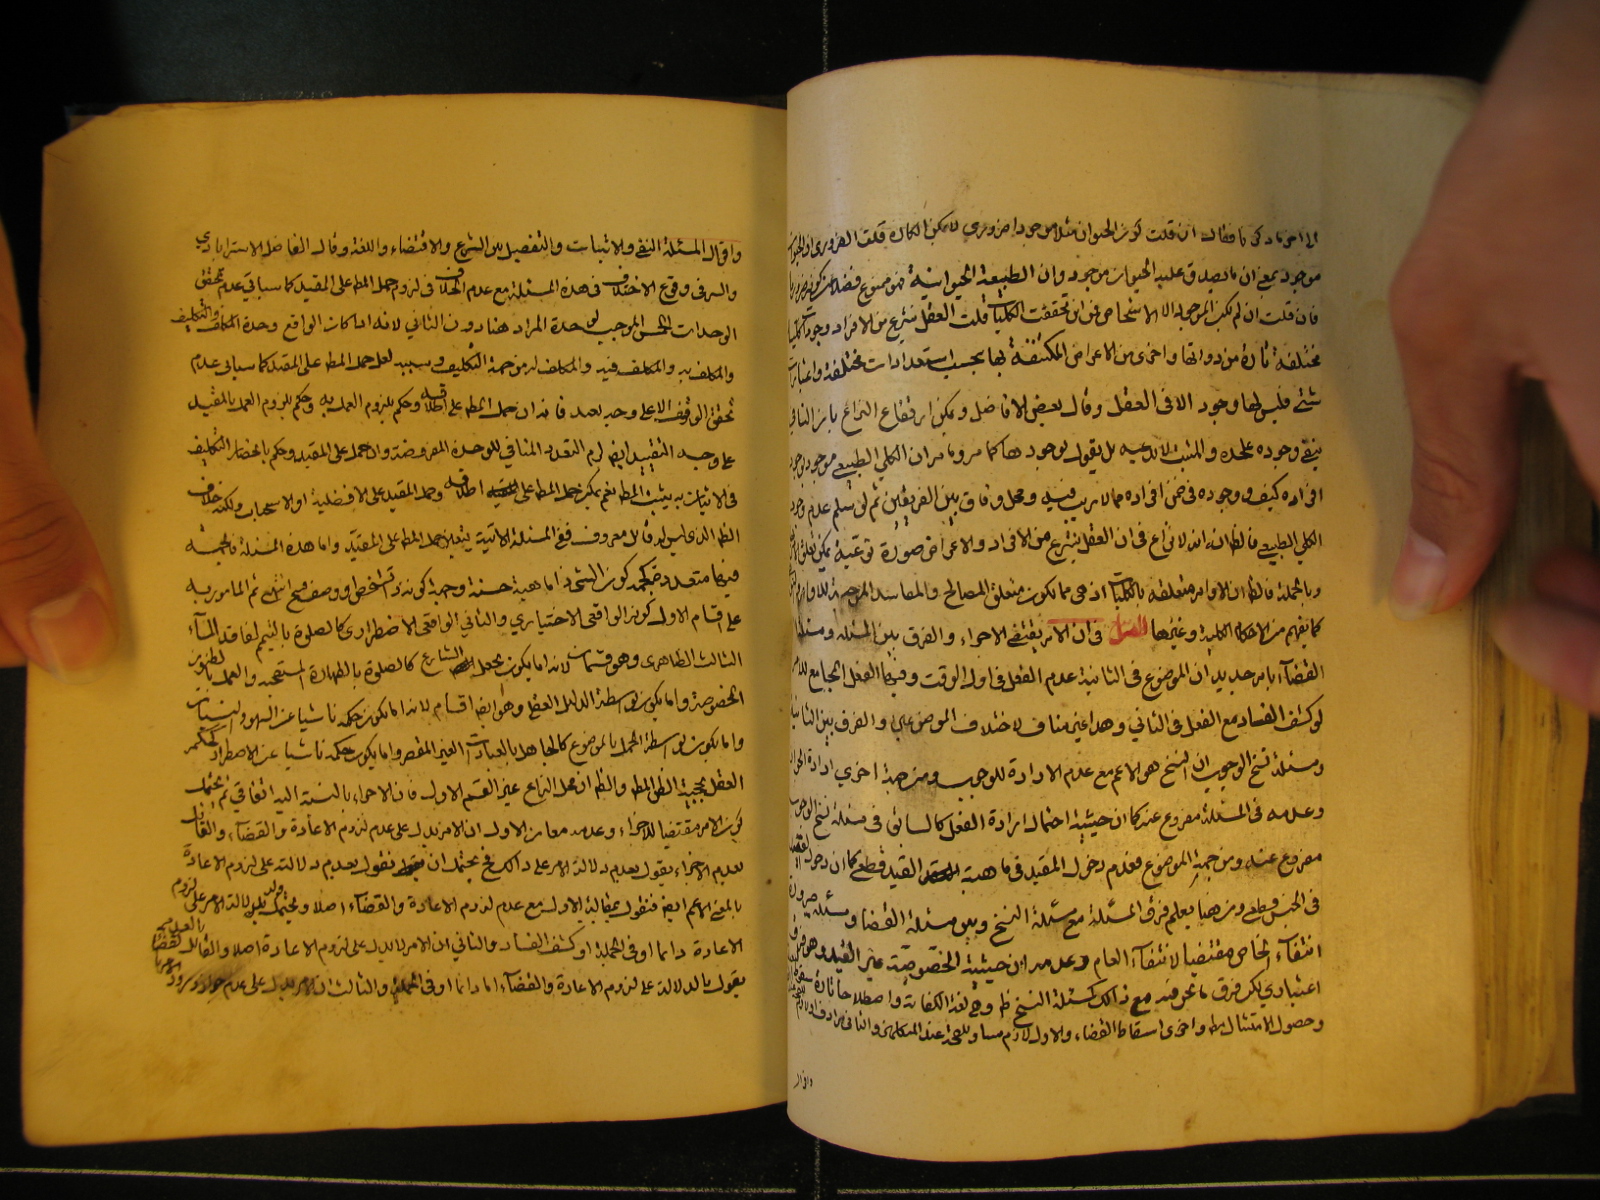 ان قلت كون الحيوان مثلا موجودا ضروري لا يمكن انكاره قلت الضروري ان الحيوان
موجود بمعنى ان ما يصدق عليه الحيوان موجود وان الطبيعة الحيوانية فهو ممنوع فضلا عن كونه ضروريا
فان قلت ان لم يكن الموجود الا الاشخاص فمن اين تحققت الكليات قلت العقل ينتزع من الافراد وجود
مختلفة تارة من ذواتها واخرى من الاعراض المكتنفة بها بحسب استعدادات مختلفة واعتبارات
شتى فليس لها وجود الا في العقل وقال بعض الافاضل ويمكن ارتفاع النزاع بان النافي
ينفي وجوده علحده والمثبت لا يدعيه بل يقول بوجودها كما مر ومامر ان الكلي الطبيعي موجود بوجود
افراده كيف ووجوده في ضمن افراده مما لا ريب فيه ومحل وفاق بين الفريقين ثم لو سلم عدم وجود
الكلي الطبيعي فالظ انه لا نزاع في ان العقل ينتزع من الافراد والاعراض صورة نوعية يمكن تعلق
وبالجملة فالظ ان الاوامر متعلقة بالكليات اذ هي مما تكون متعلق المصالح والمفاسد
كما يفهم من الاحكام الكلية وغيرها في ان الامر يقتضي الاجزاء والفرق بين المسئلة ومسئلة
القضاء بامر جديد ان الموضوع في الثانية عدم الفعل في اول الوقت وفيها الفعل الجامع
لو كشف الفساد مع الفعل في الثاني وهذا غير مناف لاختلاف الموضوعين والفرق بين الثانية
ومسئلة نسخ الوجوب ان النسخ هو الاعم مع عدم الارادة للوجوب ومن جهة اخرى ارادة
وعدمه في المسئلة مفروغ عنه كما ان حيثية احتمال ارادة الفعل كالسابق في مسئلة نسخ الوجوب
مفروغ عنه ومن جهة الموضوع فعدم دخول المقيد في ماهية القيد قطعي كما ان دخول الفصل
في الجنس قطعي ومن هنا يعلم فرق المسئلة مع مسئلة النسخ وبين مسئلة القضا ومسئلة
انتفاء الخاص مقتضيا لانتفاء العام وعدمه ان حيثية الخصوصية عين القيد وهو
اعتباري لكن فرق ما نحن فيه مع ذلك كمسئلة النسخ ظ وهي لغة الكفاية واصطلاحا تارة
وحصول الامتثال به واخرى اسقاط القضاء والاول لازم مساو للصحة عند المتكلمين والثاني مرادف
واقوال
واقوال المسئلة النفي والاثبات والتفصيل بين الشرع والاقتضاء واللغة وقال الفاضل الاسترابادي
والسر في وقوع الاختلاف في هذه المسئلة مع عدم الخلاف في لزوم حمل المط على المقيد كما سياتي عدم تحقق
الوحدات الخمس الموجب لوحدة المراد هنا دون الثاني لانه اذا كان الواقع وحدة المكلف والتكليف
والمكلف به والمكلف فيه والمكلف له من جهة التكليف وسببه لعل حمل المط على المقيد كما سياتي عدم
تحقق الوقف الا على وحيد بعيد فانه ان حمل المط على اطلاقه وحكم بلزوم العمل به وحكم بلزوم العمل بالمقيد
على وجه التقييد ايض لزم التعدد المنافي للوحدة المفروضة وان حمل على المقيد وحكم بانحصار التكليف
في الاتيان به يثبت المط نعم يمكن حمل المط على اطلاقه وحمل المقيد على الافضلية او الاستحباب ولكنه خلاف
الظ الذي ليس له قائل معروف ففي المسئلة الاتية يتعين حمل المط على المقيد واما هذه المسئلة فالجهة
فيها متعددة كون الشئ ذا ماهية حسنة وجهة كونه ذا تشخص ووصف قبيح ثم المامور به
على اقسام الاول كونه الواقعي الاختياري والثاني الواقعي الاضطراري كالصلوة بالتيمم لفاقد الماء
الثالث الظاهري وهو قسمان لانه اما يكون بجعل الشارع كالصلوة بالطهارة المستصحبة والعمل بالظنون
المخصوصة واما يكون بواسطة الدليل العقلي وهو ايض اقسام لانه اما يكون حكمه ناشيا عن السهو والنسيان
واما يكون بواسطة الجهل بالموضوع كالجاهل بالعبادات الغير المقصر واما يكون حكمه ناشيا عن الاضطرار كحكم
العقل بحجية الظن المط والظ ان محل النزاع غير القسم الاول فان الاجزاء بالنسبة اليه اتفاقي ثم يحتمل
كون الامر مقتضيا للاجزاء وعدمه معان الاول ان الامر يدل على عدم لزوم الاعادة والقضاء والقائل
بعدم الاجزاء يقول بعدم دلالة الامر على ذلك فح يحتمل ان نقول بعدم دلالته على لزوم الاعادة
بالمعنى الاعم ايض فنقول بمقالة الاول مع عدم لزوم الاعادة والقضاء اصلا ويحتمل قوله بدلالة الامر على لزوم
الاعادة دائما او في الجملة او كشف الفساد والثاني ان الامر لا يدل على لزوم الاعادة اصلا والقائل
يقول بالدلالة على لزوم الاعادة والقضاء اما دائما او في الجملة والثالث ان الامر يدل على عدم جواز ورود